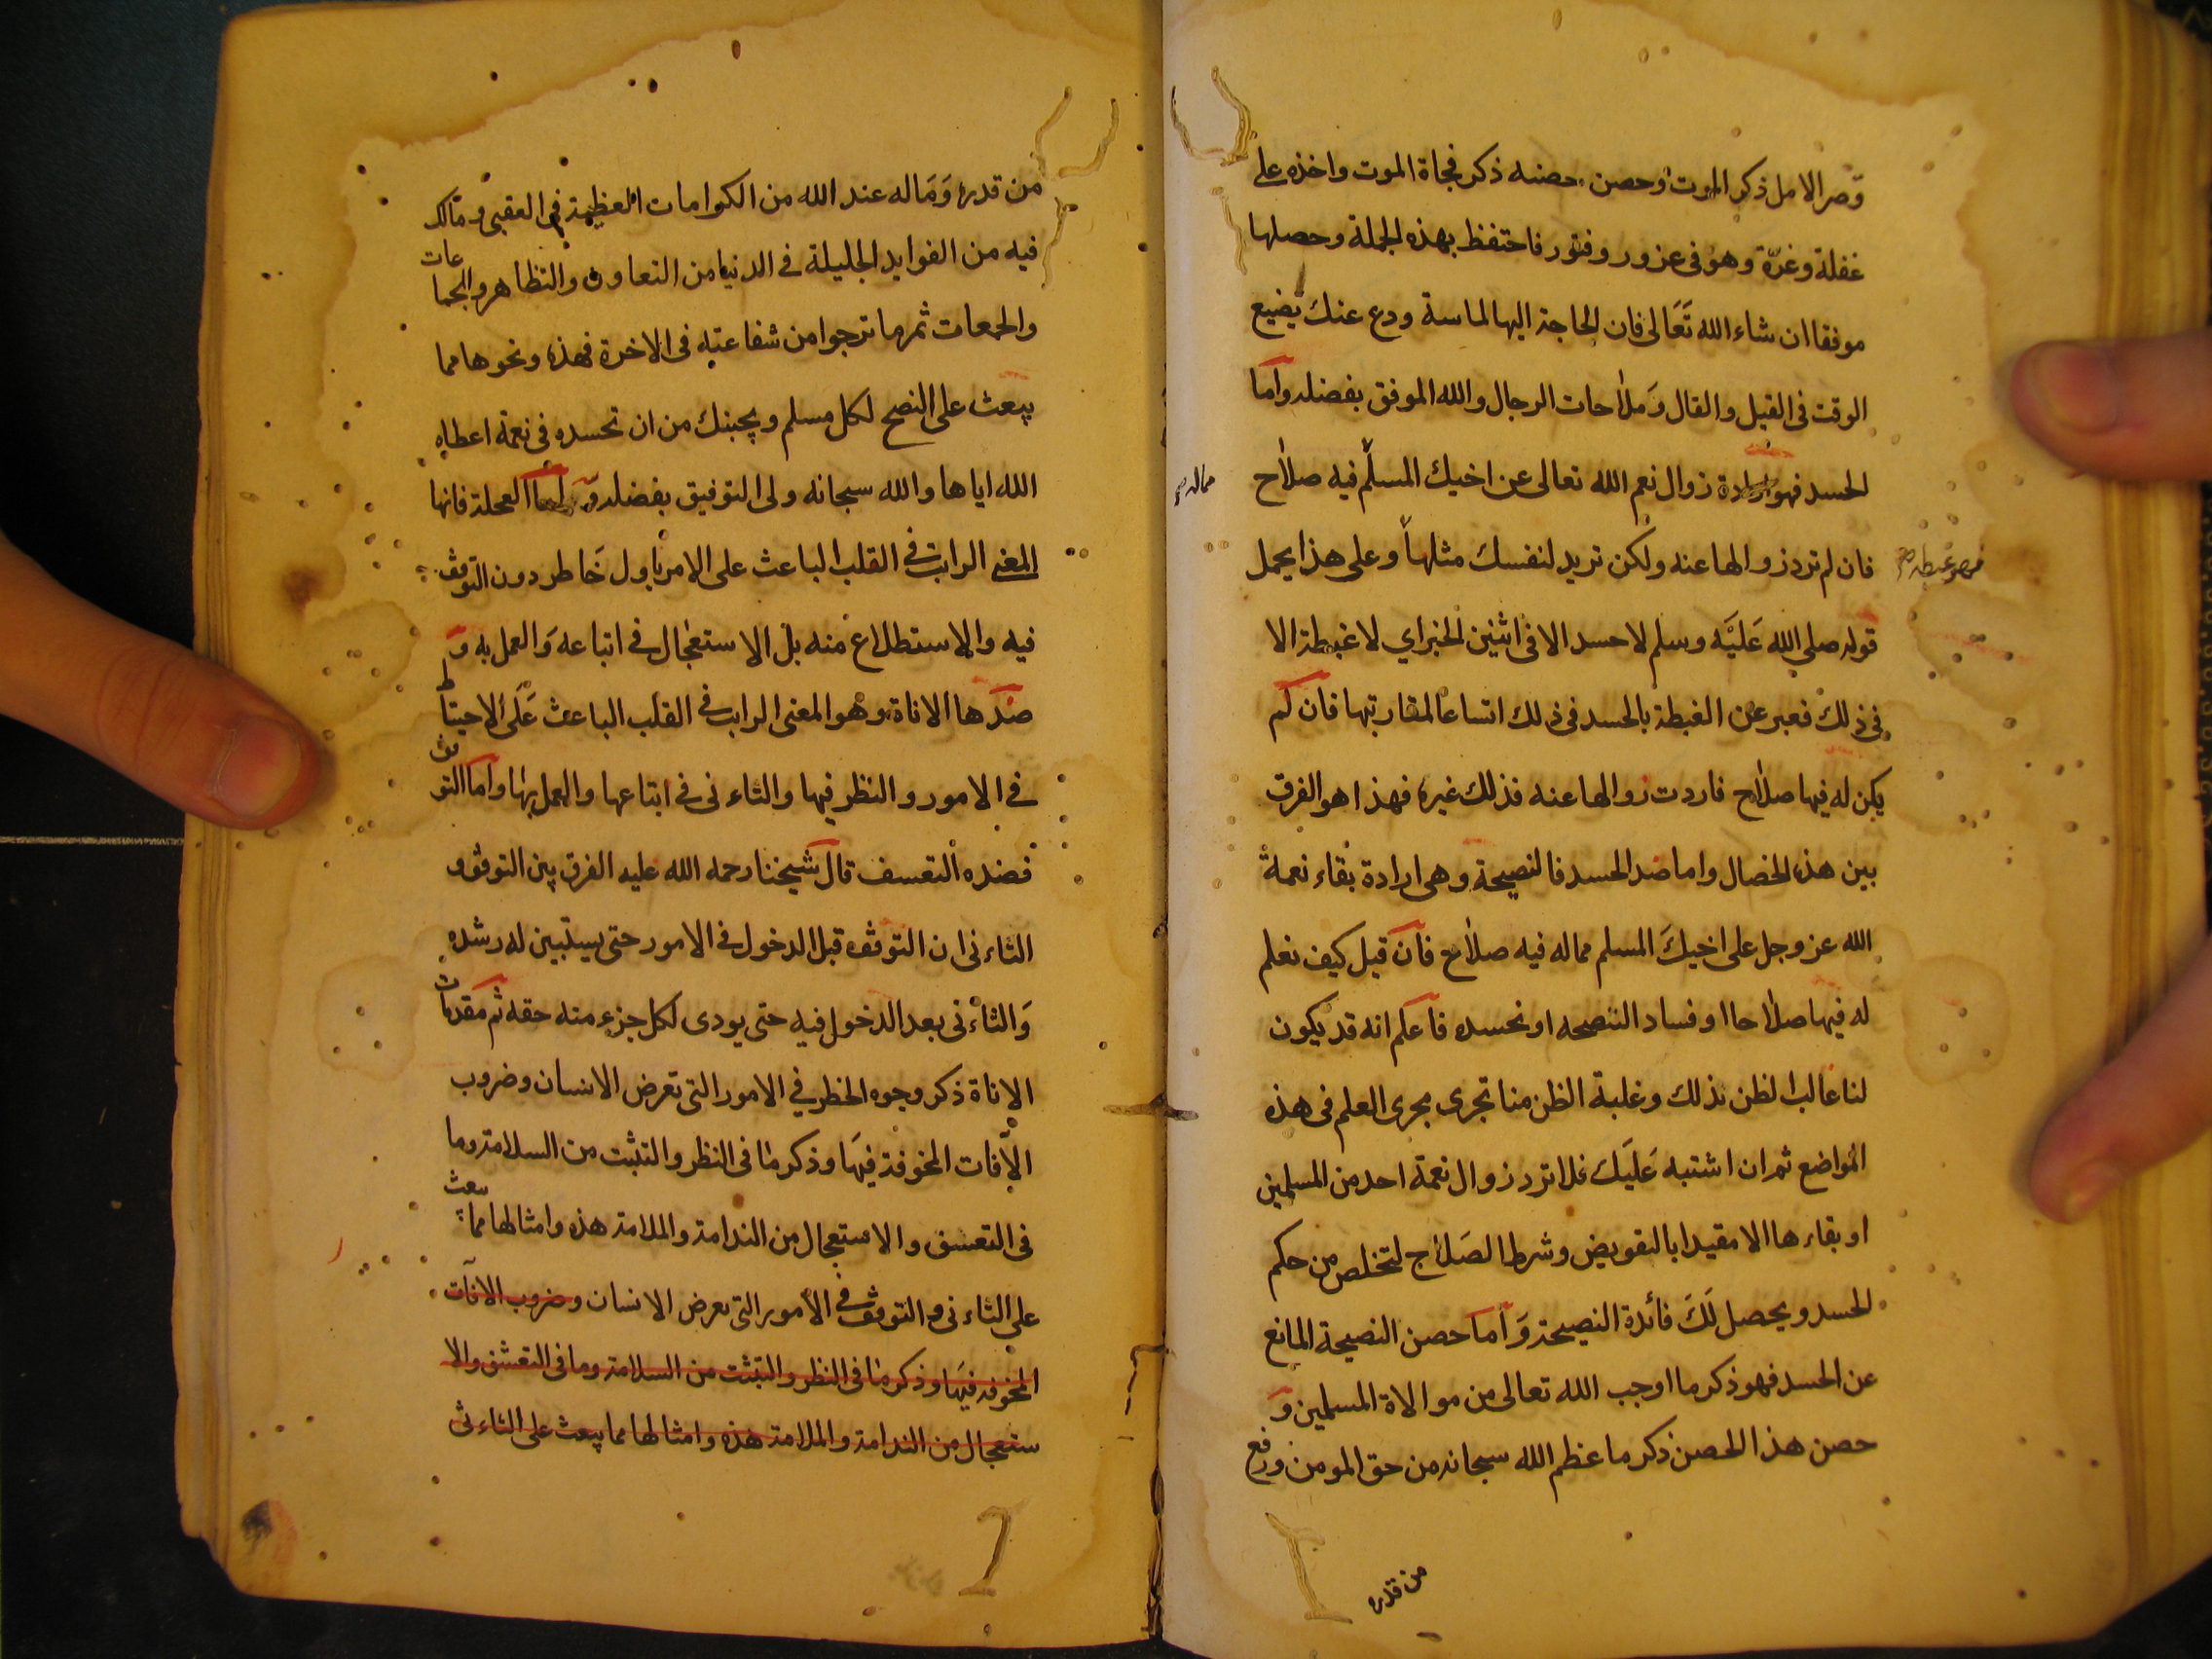 وّصر الامل ذكر الموت وحصن حصنه ذكر فجاة الموت واخذه على
غفلة وغرّة وهو فى غرور وفتور فاحتفظ بهذه الجملة وحصلها
موفقا ان شاء الله تَعَالى فان الحاجة اليها لماسة ودع عنك تضيع
الوقت فى القيل والقال وَملاحات الرجال والله الموفق بفضله واما
الحسد فهو ارادة زوال نعم الله تعالى عن اخيك المسلم فيه صلاح
مماله صح
فان لم ترد زوالها عنه ولكن تريد لنفسك مثلهاً وعلى هذا يحمل
فهو غبطه صح
قوله صلى الله عَليَه وسلم لا حسد الا فى اثنين الخبر اي لا غبطة الا
فى ذلك فعبر عن الغبطة بالحسد فى ذلك اتساعا لمقاربتها فان لم
يكن له فيها صلاح فاردت زوالها عنه فذلك غيره فهذا هو الفرق
بين هذه الخصال واما ضد الحسد فالنصيحة وهى ارادة بقاء نعمة
الله عز وجل على اخيكَ المسلم مماله فيه صلاح فان قيل كيف نعلم
له فيها صلاحا او فساد النصحه او نحسده فاعلم انه قد يكون
لنا غالب الظن بذلك وغلبة الظن منا تجرى مجرى العلم فى هذه
المواضع ثم ان اشتبه عَليَك فلا ترد زوال نعمة احد من المسلمين
او بقاءها الا مقيدا بالتفويض وشرط الصَلاح لتخلص من حكم
الحسد ويحصل لَكَ فائدة النصيحة وَاما حصن النصيحة المانع
عن الحسد فهو ذكر ما اوجب الله تعالى من موالاة المسلمين وَ
حصن هذا الحصن ذكر ما عظم الله سبحانه من حق المومن ورفع
من قدره
من قدره وَمَاله عند الله من الكرامات العظيمة فى العقبى ومالك
فيه من الفوايد الجليلة فى الدنيا من التعاون والتظاهر والجما
عات
والجمعات ثم ما ترجوا من شفاعته فى الاخرة فهذه ونحوها مما
يبعث على النصح لكل مسلم ويجنبك من ان تحسده فى نعمة اعطاه
الله اياها والله سبحانه ولى التوفيق بفضله وَ اما العجلة فانها
المعنى الراتب فى القلب الباعث على الامر باول خَاطر دون التوقف
فيه والاستطلاع منه بل الاستعجال فى اتباعه وَالعمل به وَ
ضدها الاناة وهو المعنى الراتب فى القلب الباعث عَلَى الاحتيا
ط
فى الامور والنظر فيها والثاءنى فى اتباعها والعمل بها واما التو
قف
فضده التعسف قال شيخنا رحمه الله عليه الفرق بين التوقف و
الثاءنى ان التوقف قبل الدخول فى الامور حتى يستبين له رشده
وَالثاءنى بعد الدخول فيه حتى يودى لكل جزء منه حقه ثم مقدما
ت
الاناة ذكر وجوه الخطر في الامور التى تعرض الانسان وضروب
الآفات المخوفة فيهَا وذكر ما فى النظر والتثبت من السلامة وما
فى التعسف والاستعجال من الندامة والملامة هذه وامثالها مما
يبعث
على الثاءنى والتوقف فى الأمور التى تعرض الانسان وضروب الافآت
المخوفه فيهَا وذكر ما فى النظر والتثبت من السلامة وما فى التعسف والا
ستعجال من الندامة والملامة هذه وامثالها مما يبعث على الثاءنى